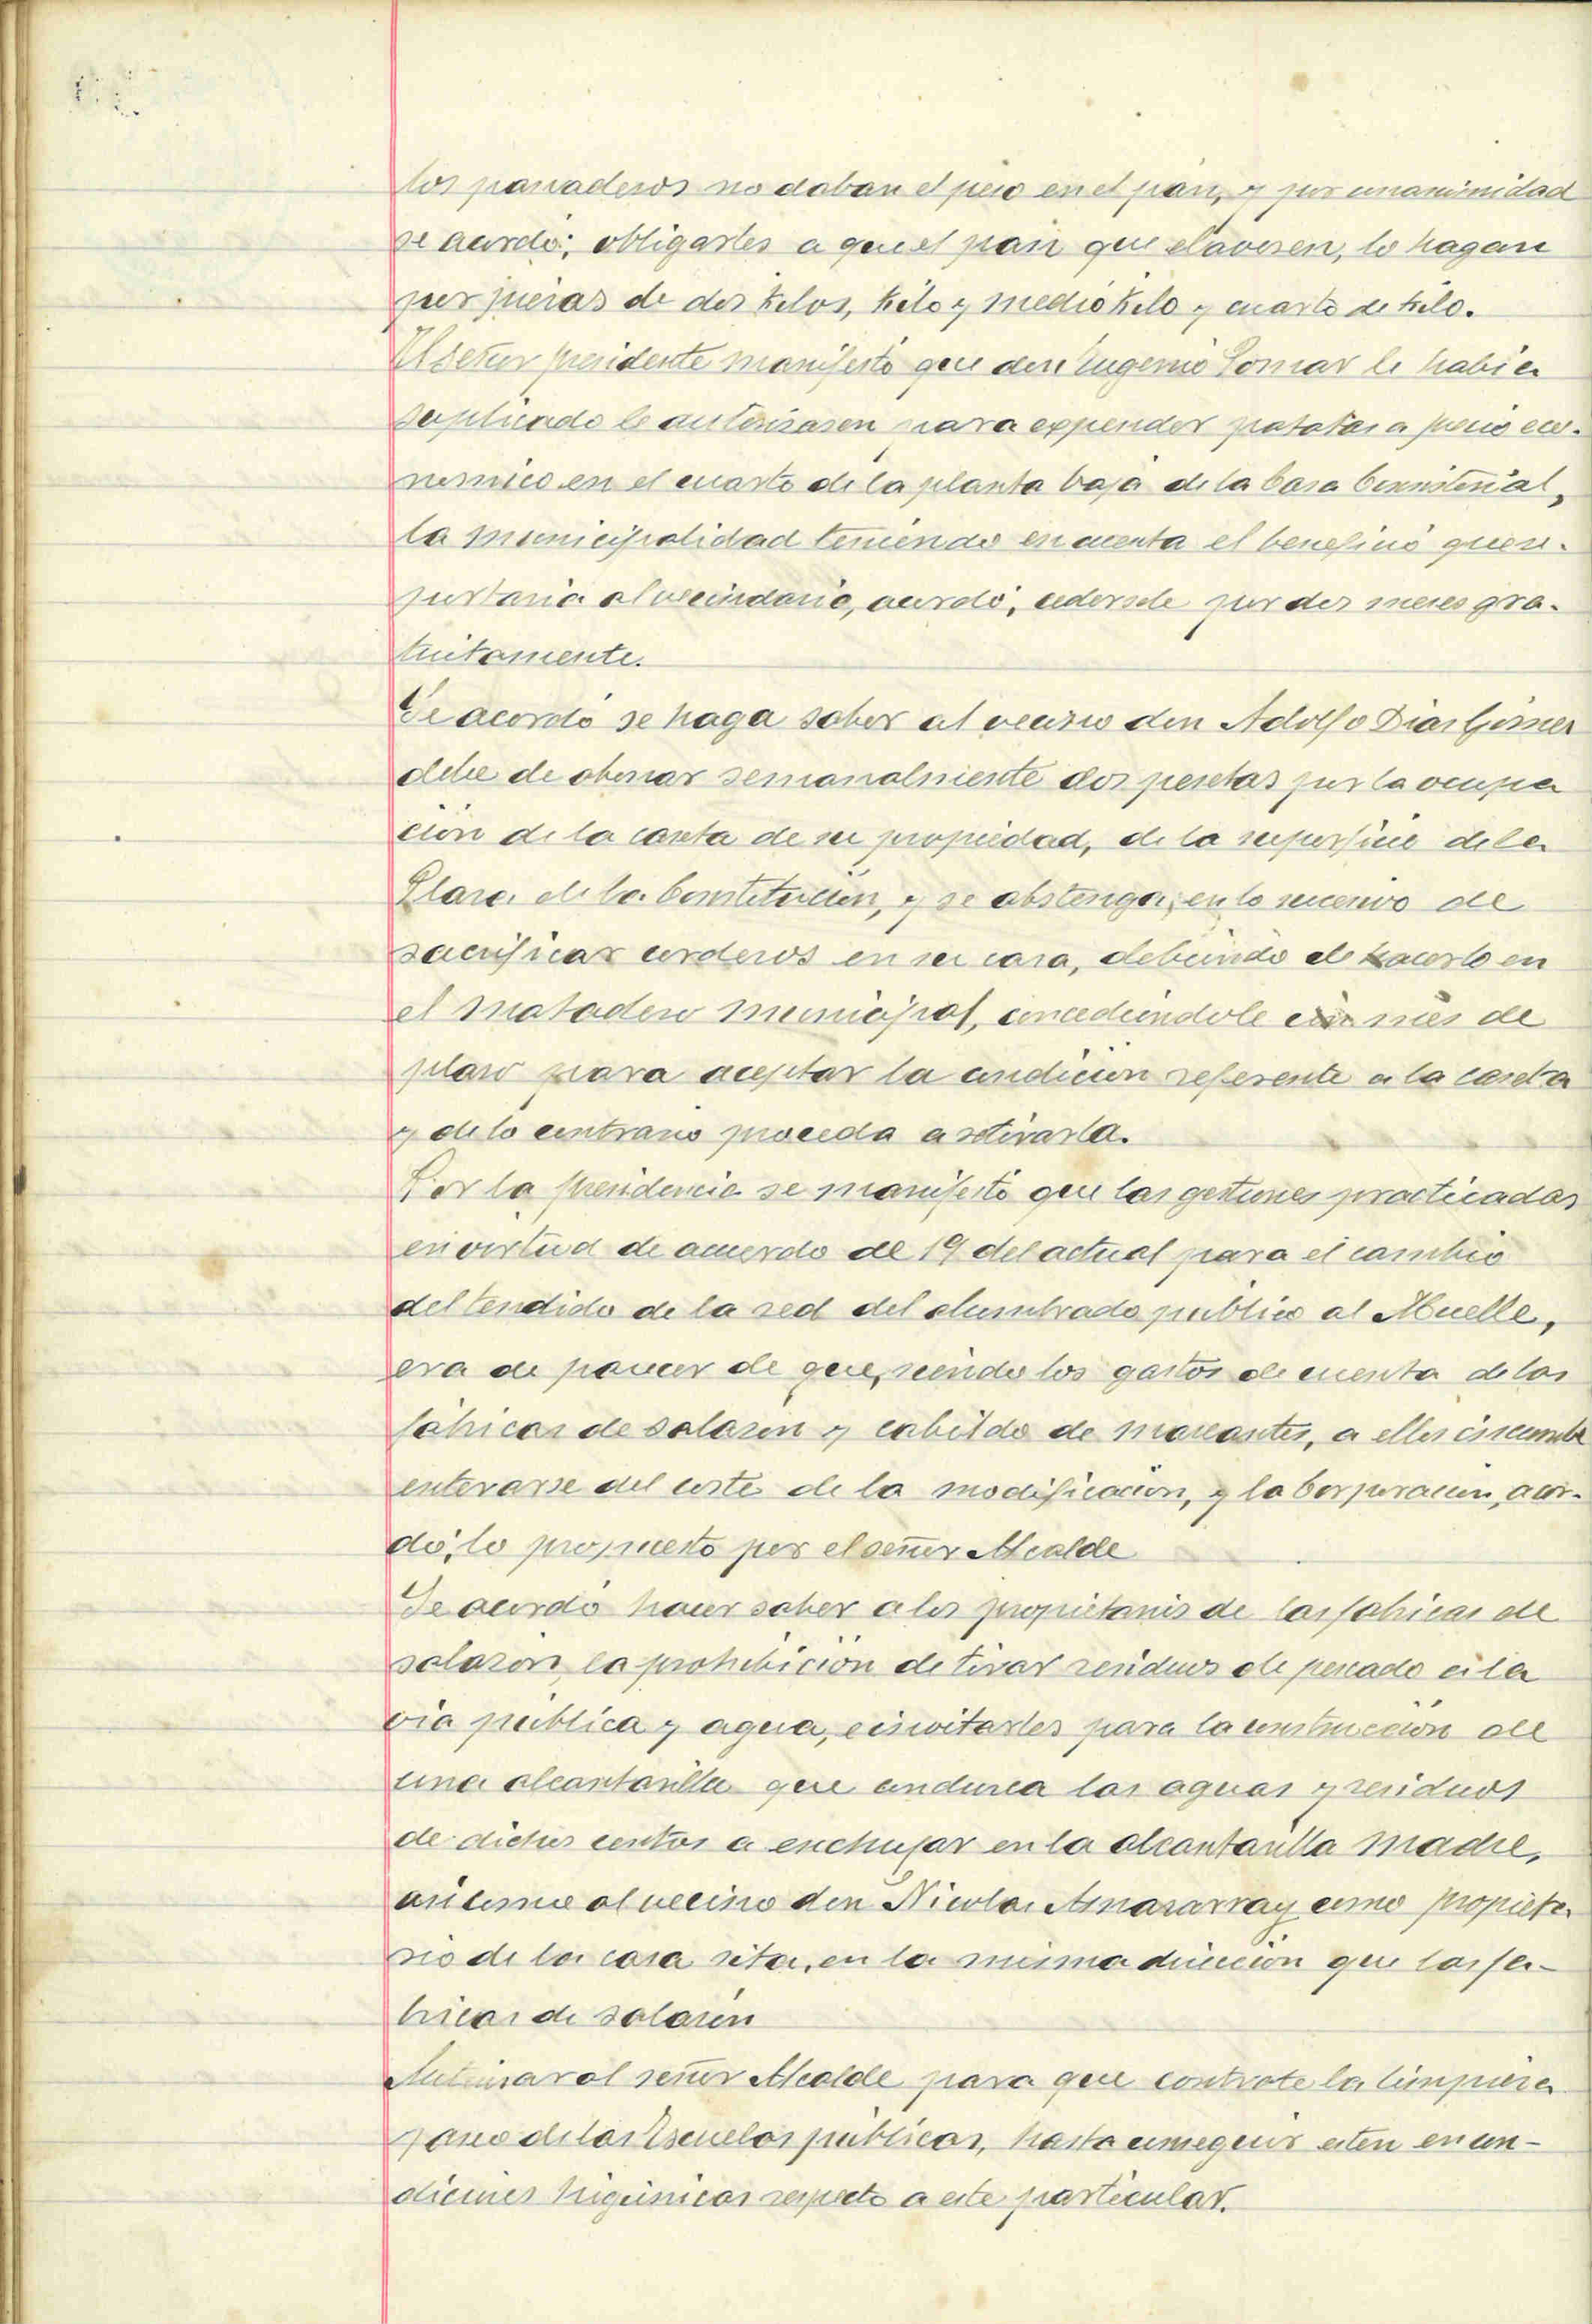 los panaderos no daban el peso en el pan, y por unanimidad
se acordó; obligarles a que el pan que elavoren, lo hagan
por piezas de dos kilos, kilo y medio kilo y cuarto de kilo.
El señor presidente manifestó que don Eugenio Tomar le había
suplicado le autorizasen para expender patatas a precio eco-
nomico en el cuarto de la planta baja de la Casa Consistorial,
la municipalidad teniendo en cuenta el beneficio que re-
portaria al vecindario, acordó, cedersele por dos meses gra-
tuitamente.
Se acordó se haga saber al vecino don Adolfo Diaz Gomez
debe de abonar semanalmente dos pesetas por la ocupa
ción de la caseta de su propiedad, de la superficie de la
Plaza de la Constitucion, y se abstenga, en lo sucesivo de
sacrificar corderos en su casa, debiendo de hacerlo en
el matadero municipal, concediendole un mes de
plazo para aceptar la condicion referente a la caseta
y de lo contrario proceda a retirarla.
Por la presidencia se manifestó que las gestiones practicadas
en virtud de acuerdo de 19 del actual para el cambio
del tendido de la red del alumbrado publico al Muelle,
era de parecer de que, siendo los gastos de cuenta de las
fabricas de salazon y cabildo de mareantes, a ellos incumbe
enterarse del coste de la modificacion, y la Corporacion, acor-
dó, lo propuesto por el señor Alcalde
Se acordó hacer saber a los propietarios de las fabricas de
salazon, la prohibición de tirar residuos de pescado a la
via publica y agua, e invitarles para la construccion de
una alcantarilla que conduzca las aguas y residuos
de dichos centros a enchufar en la alcantarilla madre,
asi como al vecino don Nicolas Amararray como propieta
rio de la casa sita, en la misma dirección que las fa-
bricas de salazon
Autorizar al señor Alcalde para que contrate la limpieza
y aseo de las Escuelas publicas, hasta conseguir esten en con-
diciones higienicas respecto a este particular.